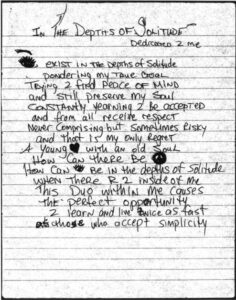 In The Depths of Solitude
Dedicated 2 me
exist in the Depths of Solitude
pondering my True Goal
Trying 2 find peace of MIND
and still preserve my Soul
CONSTANTLY yearning 2 be accepted
and from all receive respect
Never Comprising but sometimes risky
and that is my only Regret
A young ♥ with an old Soul
How can there be ☮
How can 👁 be in the depths of Solitude
when there R 2 inside of me
This Duo within me causes
the perfect opportunity
2 learn and live twice as fast
as those who accept simplicity